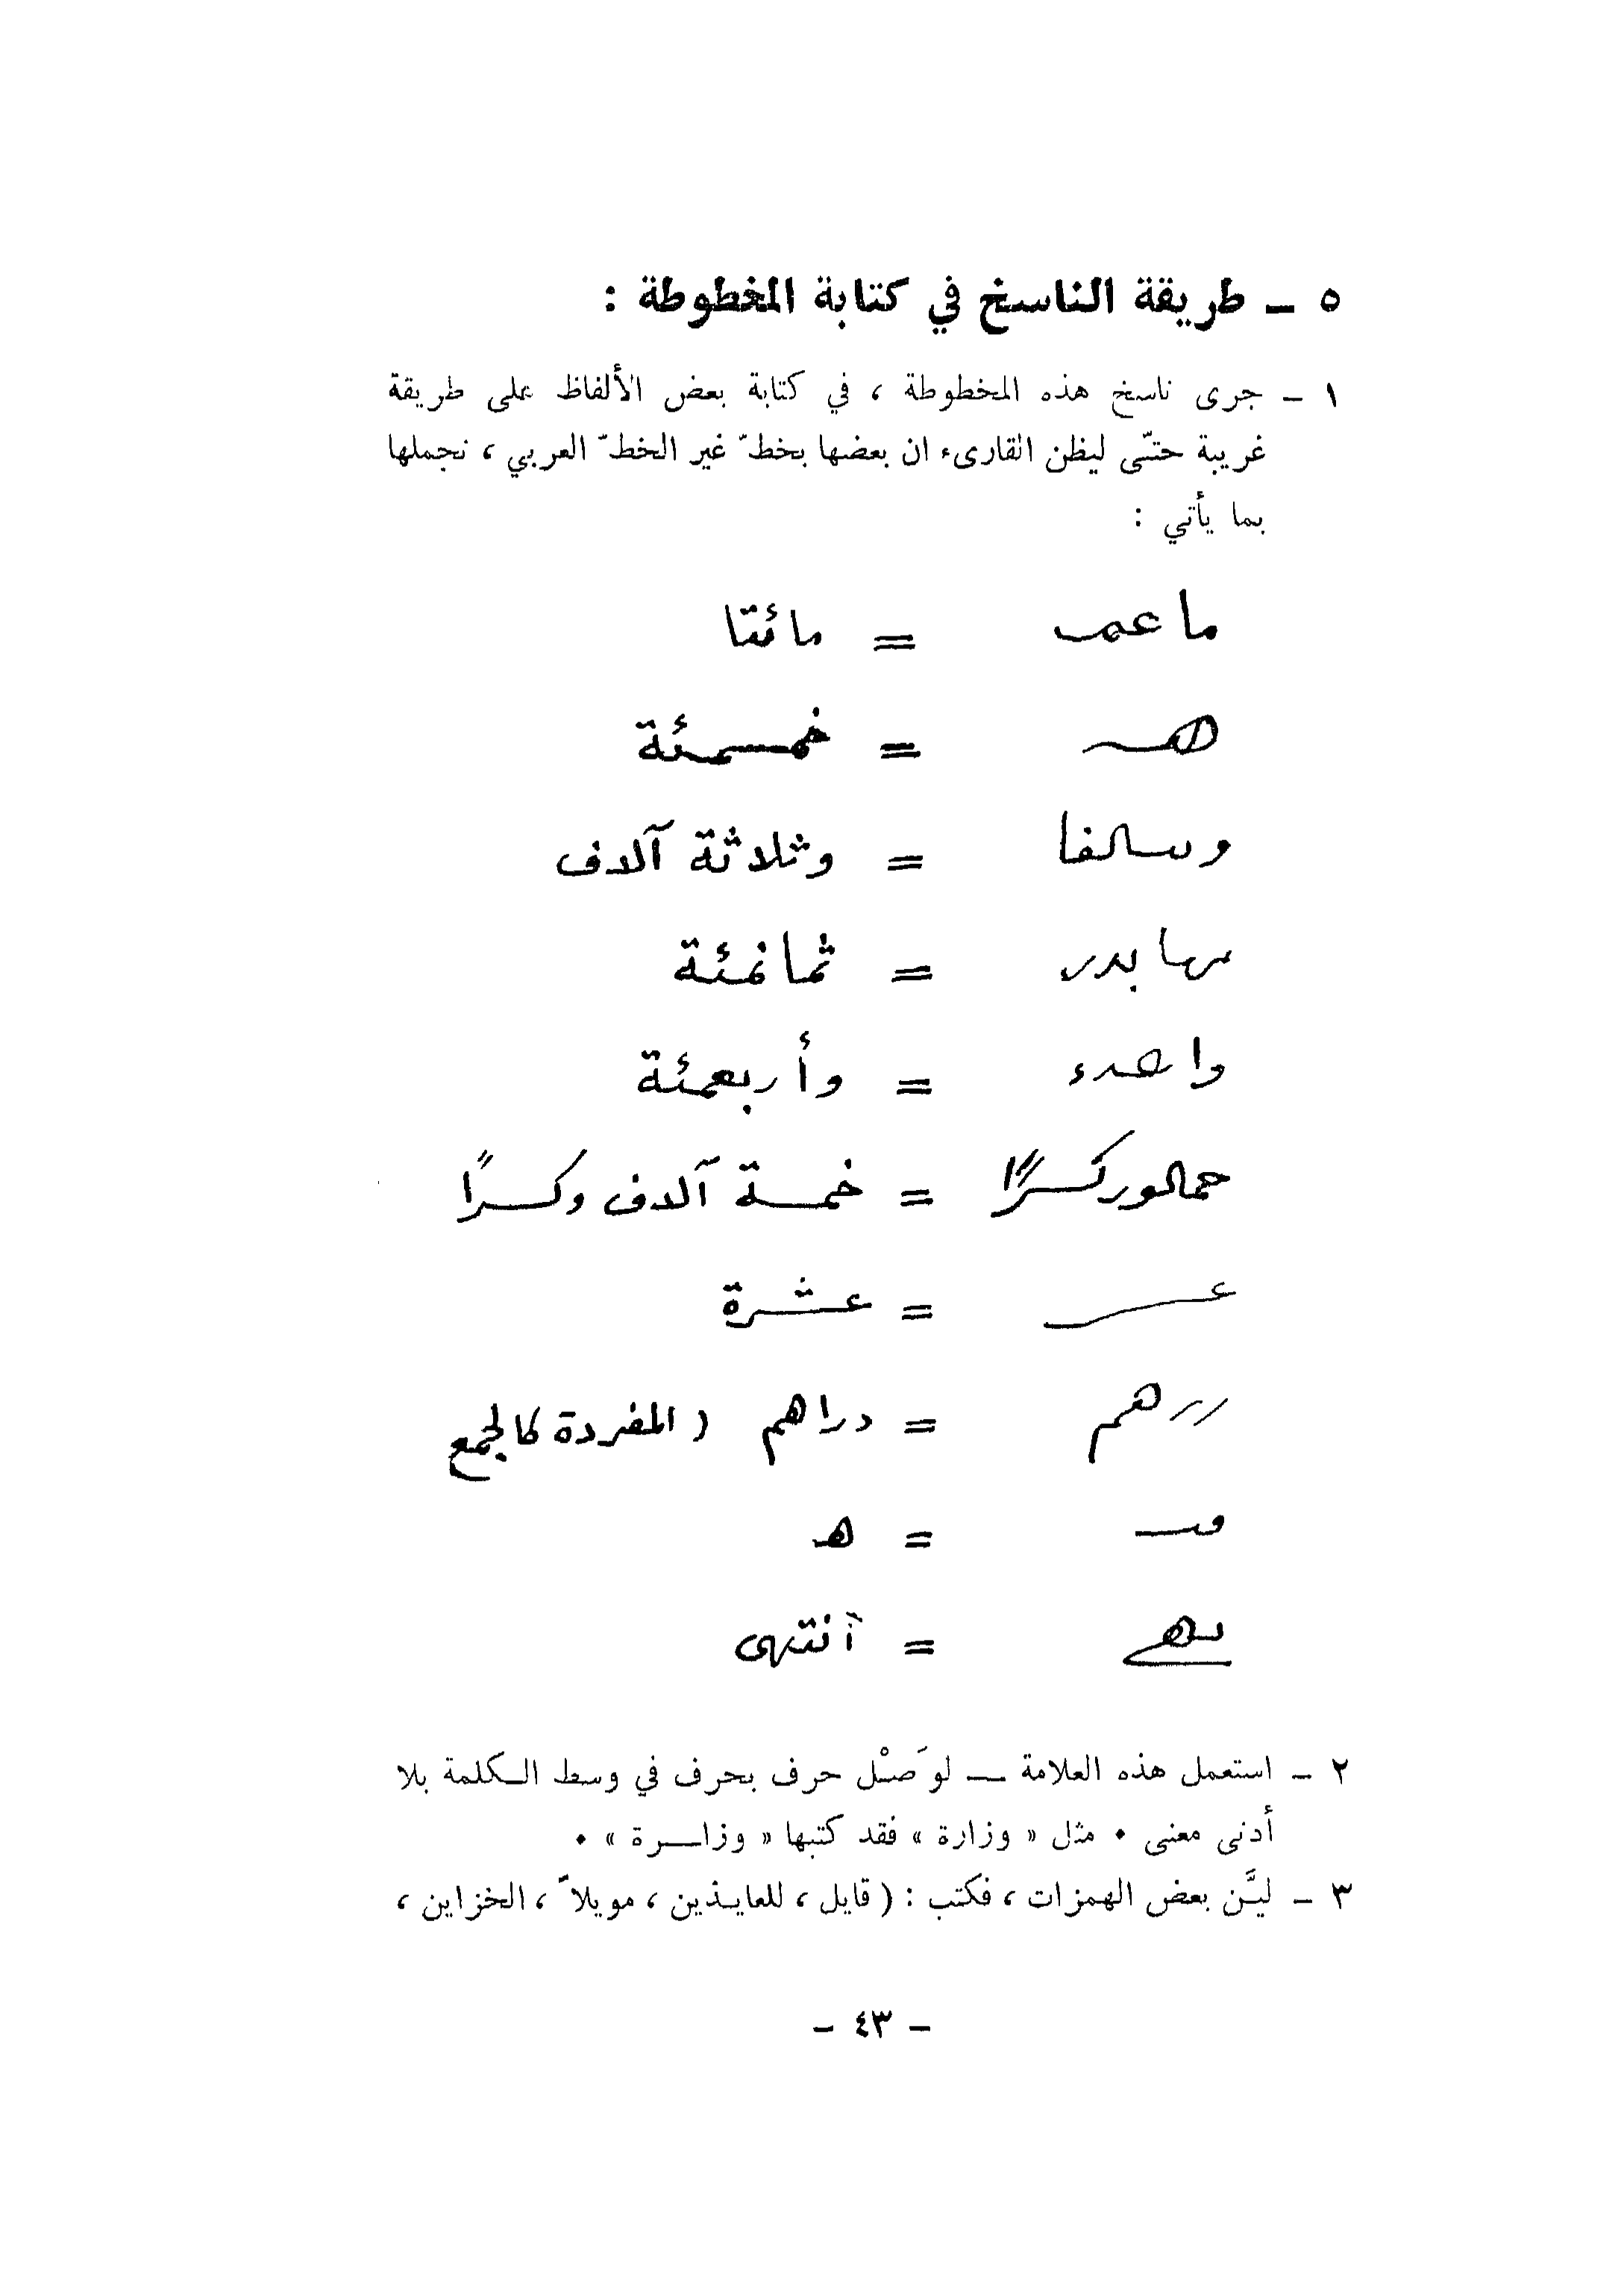 ٥ ـ طريقة الناسخ في كتابة المخطوطة :
١ ـ جرى ناسخ هذه المخطوطة ، في كتابة بعض الألفاظ على طريقة
غريبة حتّى ليظن القارىء ان بعضها بخطّ غير الخطّ العربي ، نجملها
بما يأتي :
= مائتا
= خمسمئة
= وثلاثة آلاف
= ثمانمئة
= وأربعمئة
= خمسة آلاف وكسرًا
= عشرة
= دراهم ( المفردة كالجمع
= هـ
= آنتهى
٢ ـ استعمل هذه العلامة ـــ لوَصْل حرف بحرف في وسط الكلمة بلا
أدنى معنى ٠ مثل « وزارة » فقد كتبها « وزاـــرة » ٠
٣ ـ ليَّن بعض الهمزات ، فكتب : ( قايل ، للعايذين ، مويلاً ، الخزاين ،
ـ ٤٣ ـ